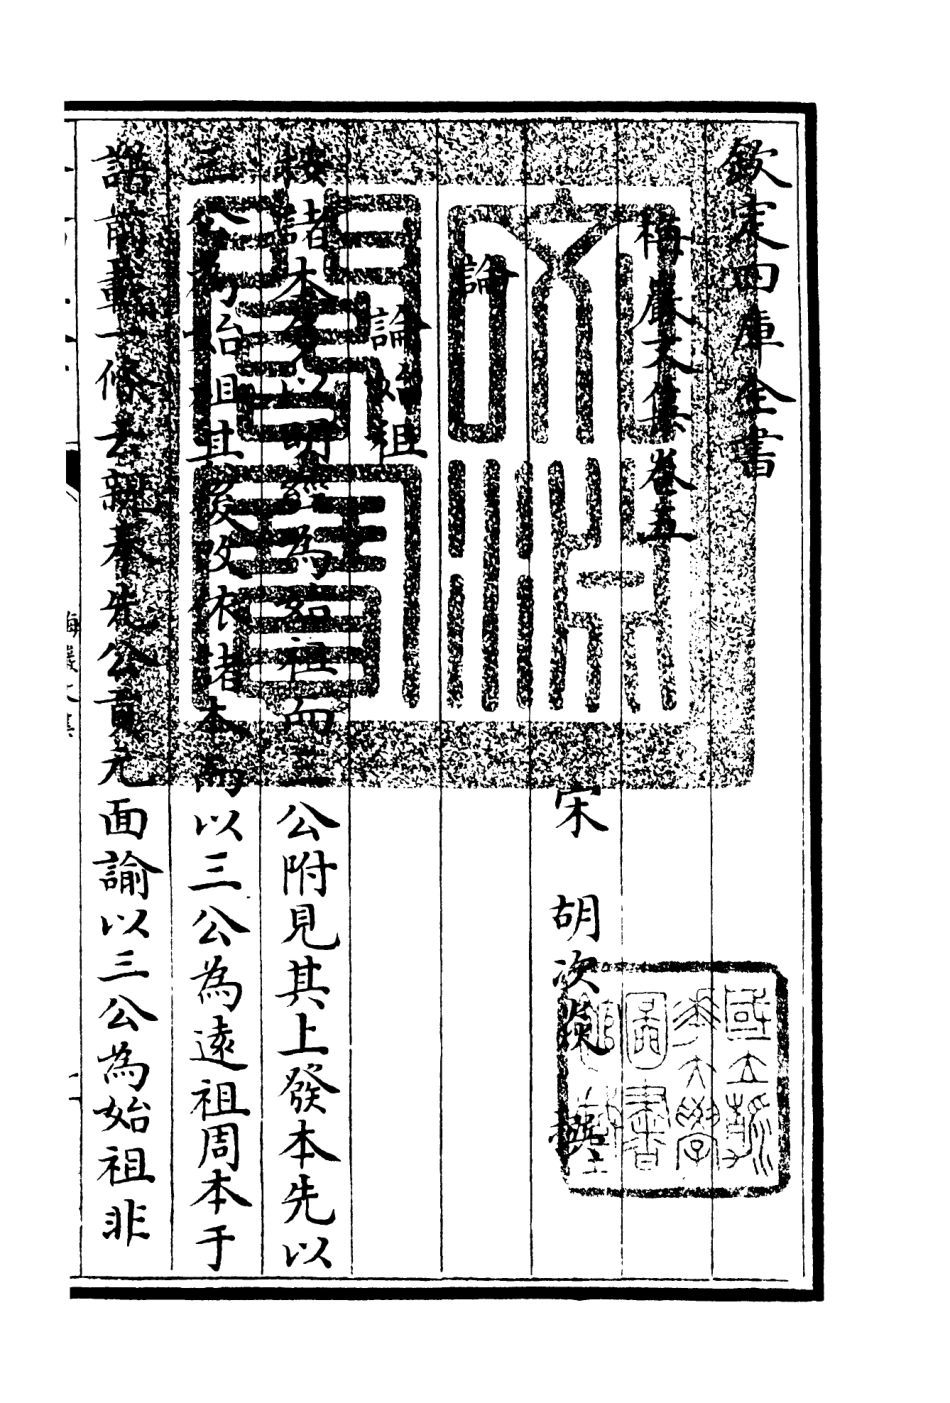 欽定四庫全書
梅巖文集卷五
宋 胡次焱 撰
論
論始祖
按諸本多以明經為始祖而三公附見其上發本先以
三公為始祖其後改依諸本而以三公為遠祖周本于
譜前畫一條去親奉先公貢元面諭以三公為始祖非
國立浙江大學圖書館藏
梅巖文集